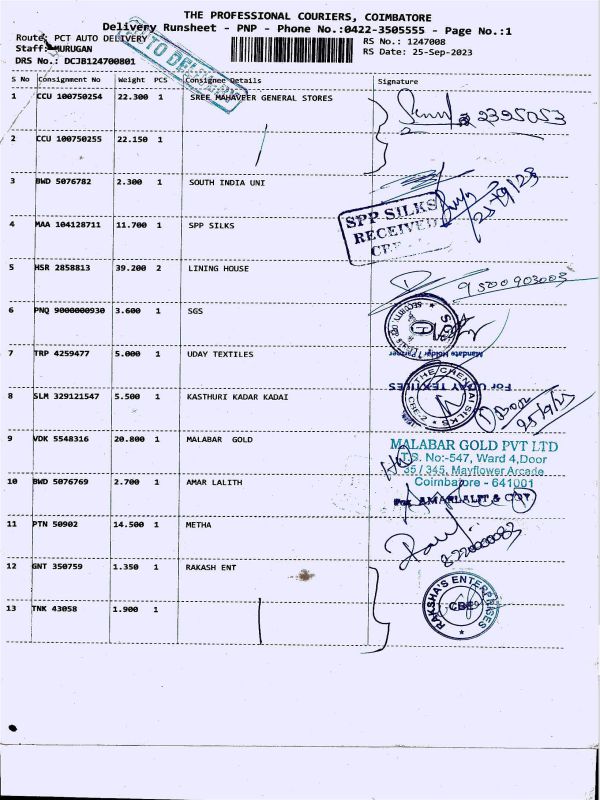 THE PROFESSIONAL COURIERS, COIMBATORE
Delivery Runsheet - PNP - Phone No.:0422-3505555 - Page No.:1
Route: PCT AUTO DELIVERY
RS No.: 1247008
Staff: MURUGAN
RS Date: 25-Sep-2023
DRS No.: DCJB124700801
S No Consignment No Weight PCS Consignee Details Signature
1 CCU 100750254 22.300 1 SREE MAHAVEER GENERAL STORES
2325053
2 CCU 100750255 22.150 1
3 BWD 5076782 2.300 1 SOUTH INDIA UNI
4 MAA 104128711 11.700 1 SPP SILKS
SPP SILKS
RECEIVED
5 HSR 2858813 39.200 2 LINING HOUSE
9500903003
6 PNQ 9000000930 3.600 1 SGS
7 TRP 4259477 5.000 1 UDAY TEXTILES
Mandate Holder / Partner
For UDAY TEXTILES
8 SLM 329121547 5.500 1 KASTHURI KADAR KADAI
THE CHENNAI SILKS
CBE-2
9 VDK 5548316 20.800 1 MALABAR GOLD
MALABAR GOLD PVT LTD
T.S. No:-547, Ward 4,Door
35 / 345, Mayflower Arcade
Coimbatore - 641001
10 BWD 5076769 2.700 1 AMAR LALITH
11 PTN 50902 14.500 1 METHA
12 GNT 350759 1.350 1 RAKASH ENT
RAKSHA'S ENTERPRISES
CBE
13 TNK 43058 1.900 1